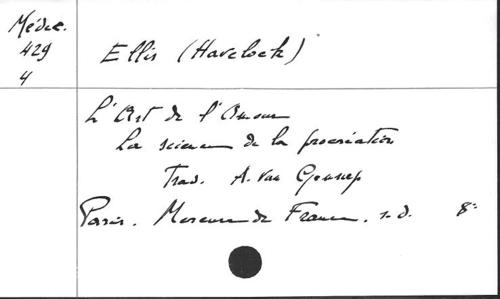 Médec.
429
4
Ellis (Havelock)
L'Art de l'Amour
La science de la procréation
Trad. A. Van Gennep
Paris. Mercure de France. s.d. 8°